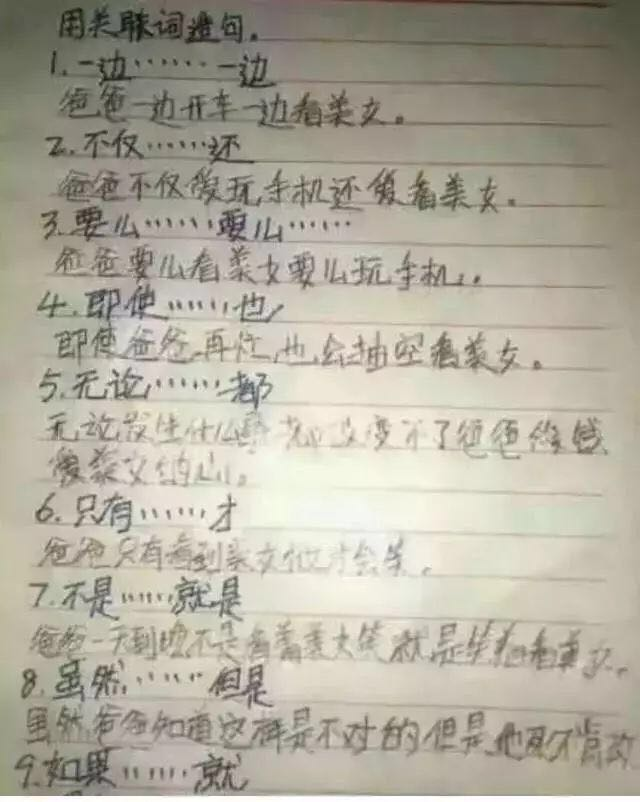 用关联词造句。
1.一边……一边
爸爸一边开车一边看美女。
2.不仅……还
爸爸不仅爱玩手机还爱看美女。
3.要么……要么……
爸爸要么看美女要么玩手机。
4.即使……也
即使爸爸再忙,也会抽空看美女。
5.无论……都
无论发生什么事都改变不了爸爸
爱美女的心。
6.只有……才
爸爸只有看到美女他才会笑。
7.不是……就是
爸爸一天到晚不是看着美女笑就是看美女。
8.虽然……但是
虽然爸爸知道这样是不对的但是他死不肯改
9.如果……就